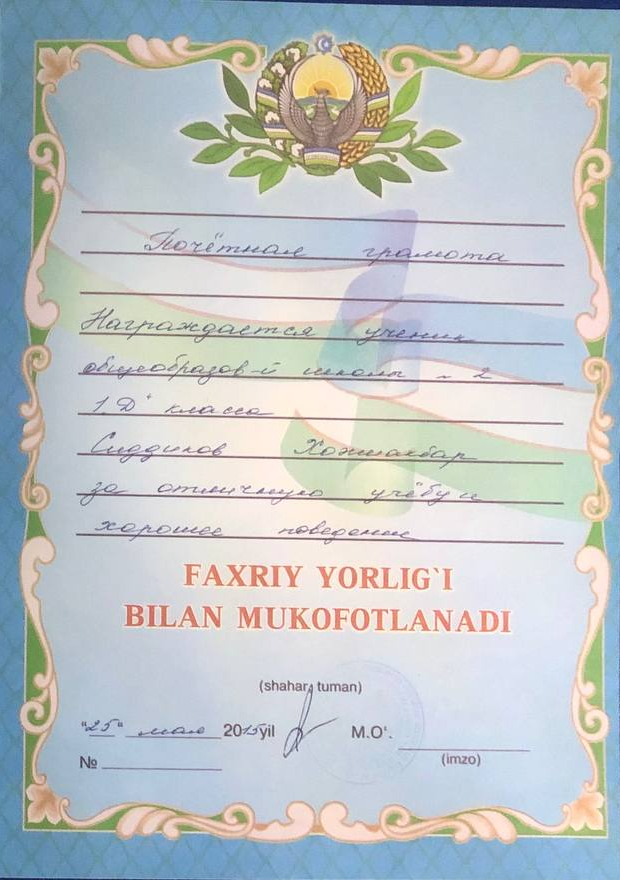 Почётная грамота
Награждается ученик
общеобразов-й школы №2
1 „Д“ класса
Сиддиков Хожиакбар
за отличную учёбу и
хорошее поведение
FAXRIY YORLIG`I
BILAN MUKOFOTLANADI
(shahar, tuman)
"25" мая 2015 yil M.O‘.
(imzo)
№